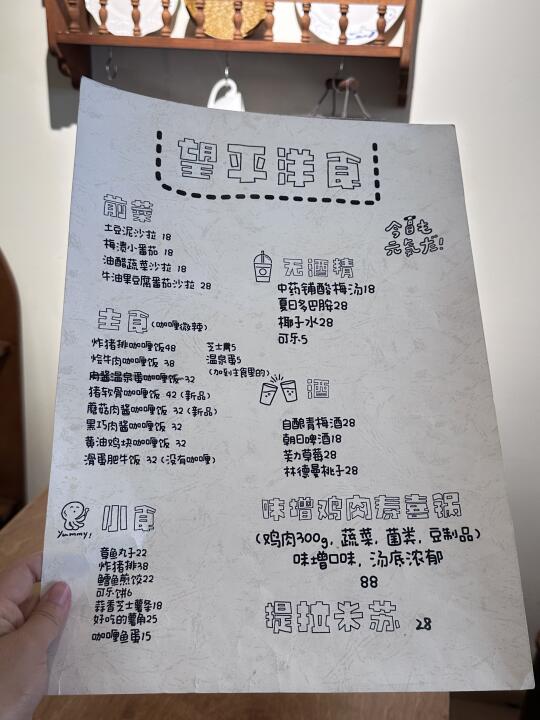 望平洋食
今日也
元気だ!
前菜
土豆泥沙拉 18
梅渍小番茄 18
油醋蔬菜沙拉 18
牛油果豆腐番茄沙拉 28
主食(咖喱微辣)
炸猪排咖喱饭48
烩牛肉咖喱饭 38
肉酱温泉蛋咖喱饭 32
猪软骨咖喱饭 42(新品)
蘑菇肉酱咖喱饭 32(新品)
黑巧肉酱咖喱饭 32
黄油鸡块咖喱饭 32
滑蛋肥牛饭 32(没有咖喱)
芝士片5
温泉蛋5
(加到主食里的)
yummy!
小食
章鱼丸子22
炸猪排38
鳕鱼煎饺22
可乐饼6
蒜香芝士薯条18
好吃的薯角25
咖喱鱼蛋15
无酒精
中药铺酸梅汤18
夏日多巴胺28
椰子水28
可乐5
酒
自酿青梅酒28
朝日啤酒18
芙力草莓28
林德曼桃子28
味增鸡肉寿喜锅
(鸡肉300g,蔬菜,菌类,豆制品)
味增口味,汤底浓郁
88
提拉米苏 28